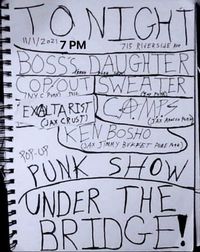 TONIGHT
11/1/2021 7 PM 715 RIVERSIDE AVE
BOSS'S DAUGHTER
COP/OUT SWEATER
(N.Y.C. PUNK)
EXALTARIST CAMPS
(JAX CRUST)
KEN BOSHO
(JAX JIMMY BUFFET PUNK)
POP-UP
PUNK SHOW
UNDER THE
BRIDGE!